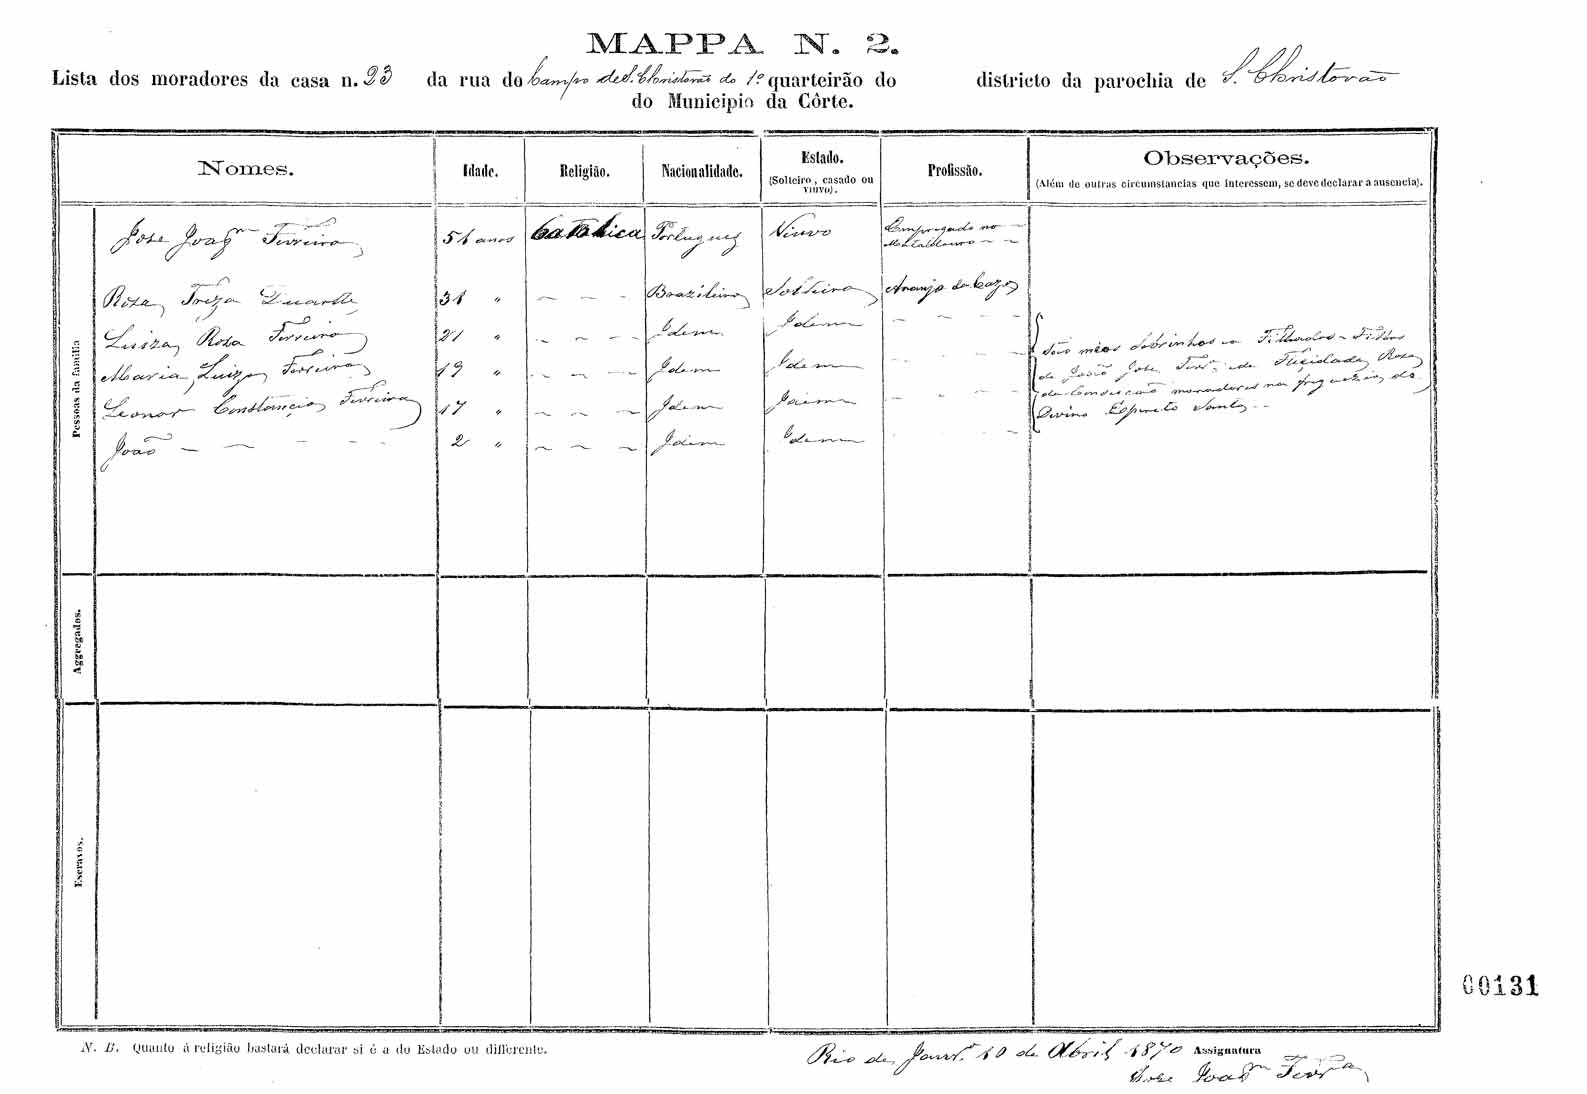 MAPPA N. 2.
Lista dos moradores da casa n. 23 da rua do Campo de S. Christovão do 1º quarteirão do districto da parochia de S. Christovão
do Municipio da Côrte.
Nomes. Idade. Religião. Nacionalidade. Estado. (Solteiro, casado ou viuvo). Profissão. Observações. (Além de outras circumstancias que interessem, se deve declarar a ausencia).
Pessoas da familia
Jose Joaqm Ferreira 51 anos Catholica Portuguez Viuvo Empregado no
Rosa Treza Duarte 31 " Brazileira Solteira Aranjo da Caza
Luiza Rosa Ferreira 21 " Idem Idem
Maria Luiza Ferreira 19 " Idem Idem
Leonor Constancia Ferreira 17 " Idem Idem
João 2 " Idem Idem
São meos Sobrinhos e Filhados - Filhos
de João Jose Ferra de Rosa
da Conceicão moradores na freguezia do
Divino Espirito Santo
Aggregados.
Escravos.
00131
N. B. Quanto á religião bastará declarar si é a do Estado ou differente.
Rio de Janro 10 de Abril 1870 Assignatura
Jose Joaqm Ferra